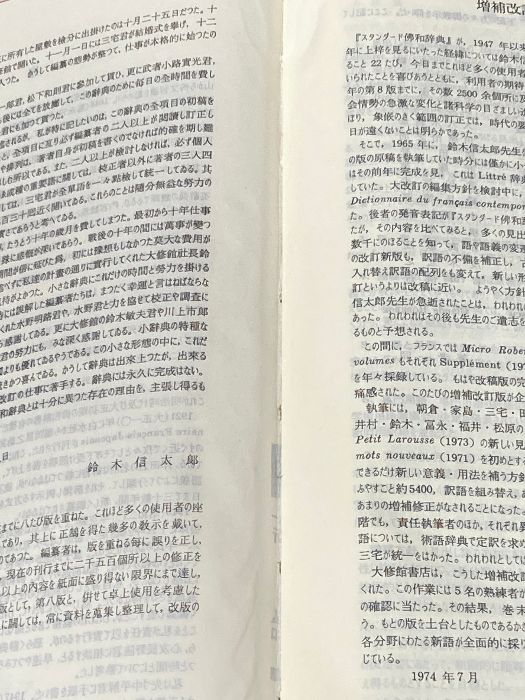 に所有した屋敷を検分に出掛けたのは十月二十五日だつた。十
在館で開いた。十一月一日には三宅君が結婚式を挙げ，十二
人つた。かうして編纂の態勢が整つて，仕事が本格的に始つたの
一郎君，松下和則君に参加して貰ひ，更に武者小路實光君，
も後には全てを放擲して，この辭典のために毎日の全時間を費し
君にも加つて貰つた。
されるが，私が特に記したいのは，この辭典の全項目の初稿を
と，全項目に亙り必ず編纂者の二人以上が閲讀し訂正し
や排列は，著者自身が初稿を書くのでなければ的確を期し難
る所以である。また，二人以上が檢討しなければ，必ず個人
成種の重要語に關しては，校正者以外に著者の三人四
しては，三宅君が全單語を一々點檢して統一してある。其
百三十回近く開いてある。これらのことは隨分無益な努力の
實さであらうと考へてゐる。
，たうとう十年の歳月を費してしまつた。最初から十年仕事
誠に感慨が深いであらう。戰後の十年の間には萬事が變つ
間が倍に延びた爲，初には豫想もしなかつた莫大な費用が
べずに私達の計畫の通りに實行してくれた大修館社長鈴
持がよかつた。小さな辭典にこれだけの時間と勞力を掛ける
には誤解した編纂者たちは，まつたく幸運と言はねばならな
くれた水野明路君や，水野君と力を協せて校正や調査に
感謝してゐる。更に大修館の鈴木敏夫君や川上市郎
君の努力にも，みな深く感謝してゐる。小辭典の特種な
間よりも優れてゐるやうである。この小さな形態の中に，これだ
きかつ喜んでゐる。かうして辭典は出來上つたが，出來る
改訂の仕事に着手する。辭典には永久に完成はない。
和辭典とは十分に異つた存在の理由を，主張し得るも
日
鈴木信太郎
までに八たび版を重ねた。これほど多くの使用者の座
であり，其上に正鵠を得た幾多の教示を戴いて，
のであつた。編纂者は，版を重ねる毎に誤りを正し，
，現在の刊行までに二千五百個所以上の修正を
以上の内容を紙面に盛り得ない限界にまで達し，
版として，第八版と，併せて卓上使用を考慮した
に關しては，常に資料を蒐集し整理して，改版の
増補改訂
『スタンダード佛和辞典』が，1947年以来
年に上梓を見るにいたった経緯については鈴木信
ること22たび，今日までこれほど多くの使用者
いられたことを喜びあうとともに，利用者の期待
年の第8版までに，その数2500余個所に及
会情勢の急激な変化と諸科学の目ざましい
ほり，象嵌のきく範囲の訂正では，時代の要
日が遠くないことは明らかであった。
そこで，1965年に，鈴木信太郎先生
の版の原稿を執筆していた時分には僅かに小
はその前年に完成を見，これは Littré 辞典
していた。大改訂の編集方針を検討中に，
Dictionnaire du français contempor
た。後者の発音表記が『スタンダード佛和辞
たが，その内容を比べてみると，多くの見出
数千にのぼることを知って，語や語義の変遷
の改訂新版も，訳語の不備を補正し，古
入れ替え訳語の配列をも変えて，新しい形
訂というよりは改稿に近い。ようやく方針
信太郎先生が急逝されたことは，われわれ
あった。われわれはその後も先生のご遺志を
るものと予想される。
この間に，フランスでは Micro Rober
volumes もそれぞれ Supplément (197
を年々採録している。もはや改稿版の完
痛感された。このたびの増補改訂版が企
執筆には，朝倉・家島・三宅・
井村・鈴木・冨永・福井・松原の
Petit Larousse (1973) の新しい見
mots nouveaux (1971) を初めとする
できるだけ新しい意義・用法を補う方針
ぶやすこと約5400，訳語を組み替え，
あまりの増補修正がなされることになった。
階でも，責任執筆者のほか，それぞれ
語については，術語辞典で定訳を求め
三宅が統一をはかった。われわれとしては
大修館書店は，こうした増補改訂
くれた。この作業には5名の熟練者が
の確認に当たった。その結果，巻末
う。もとの版を土台としたものであるか
各分野にわたる新語が全面的に採り
じている。
1974年7月